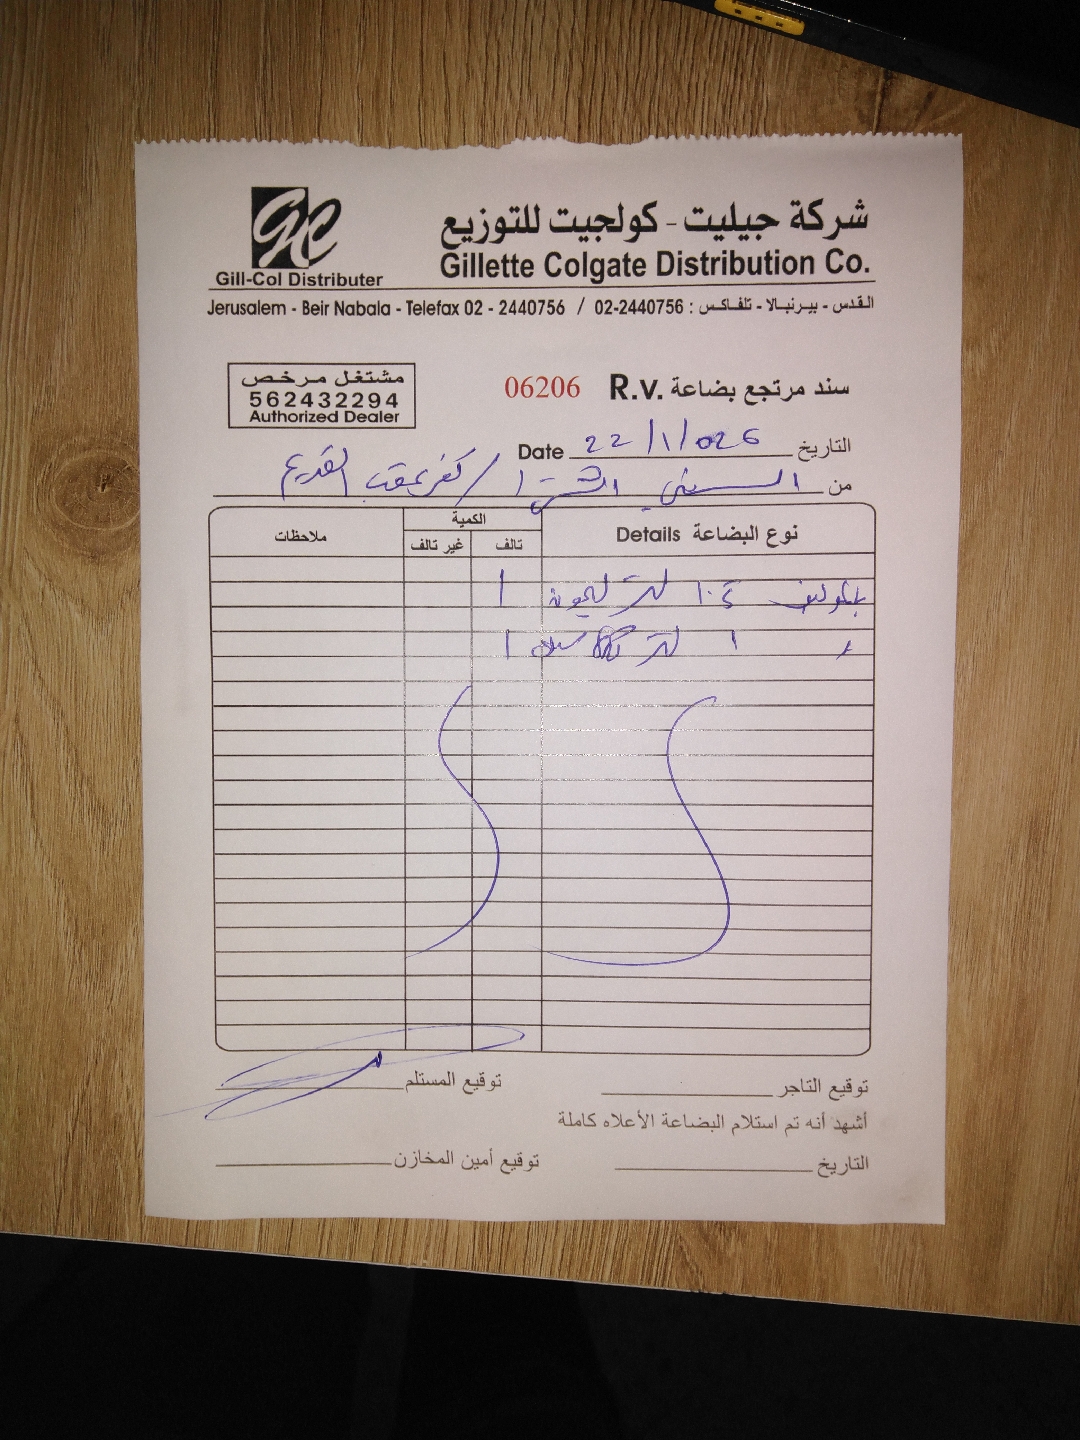 شركة جيليت - كولجيت للتوزيع
Gillette Colgate Distribution Co.
Gill-Col Distributer
Jerusalem - Beir Nabala - Telefax 02 - 2440756 / 02-2440756 : القدس - بيرنبالا - تلفاكس
مشتغل مرخص
562432294
Authorized Dealer
سند مرتجع بضاعة R.v. 06206
التاريخ 22/1/026 Date
من / كفر عقب القديم
نوع البضاعة Details الكمية ملاحظات
تالف غير تالف
لتر ليمون 1
1 لتر 1
توقيع التاجر توقيع المستلم
أشهد أنه تم استلام البضاعة الأعلاه كاملة
التاريخ توقيع أمين المخازن